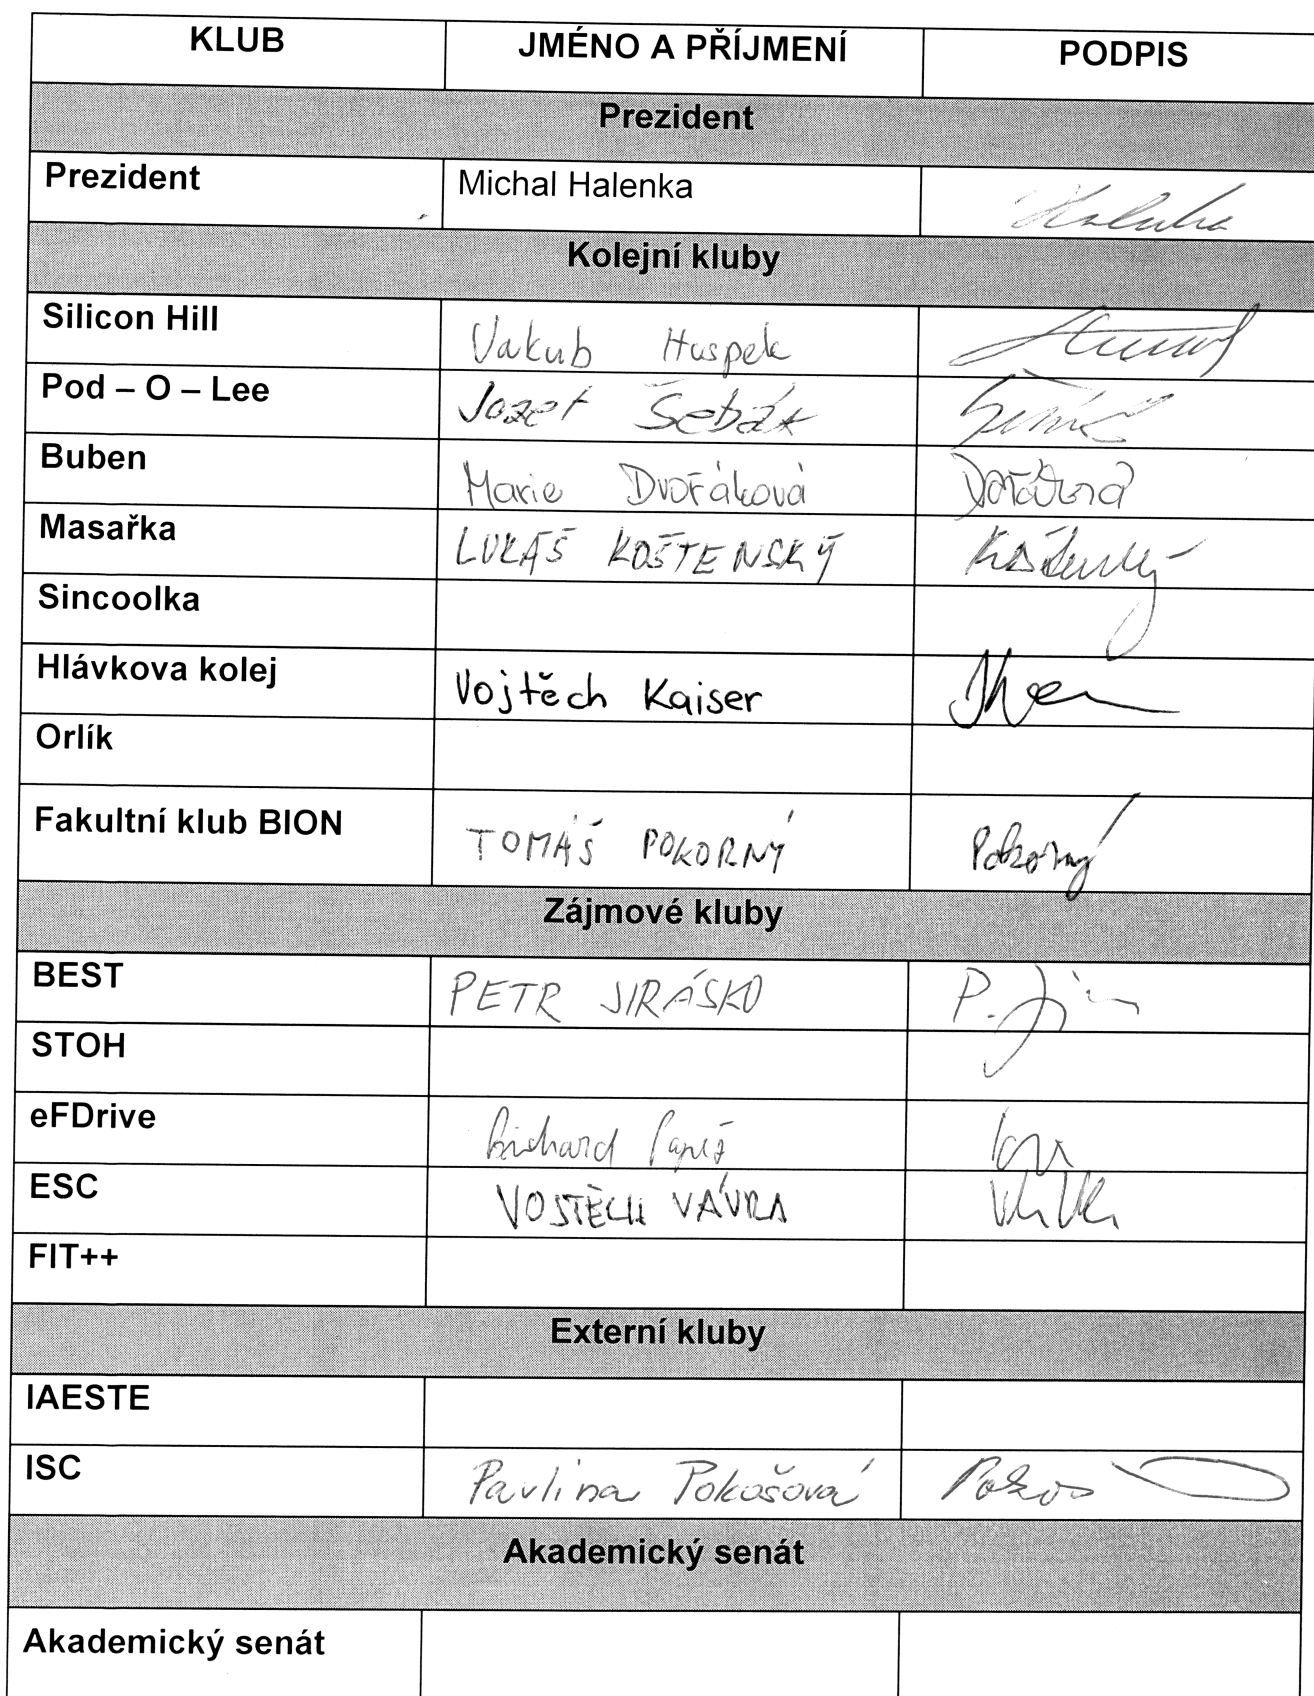 KLUB JMÉNO A PŘÍJMENÍ PODPIS
Prezident
Prezident Michal Halenka
Kolejní kluby
Silicon Hill Jakub Huspek
Pod – O – Lee Jozef Šebák
Buben Marie Dvořáková Dvořáková
Masařka LUKÁŠ KOŠTENSKÝ
Sincoolka
Hlávkova kolej Vojtěch Kaiser
Orlík
Fakultní klub BION TOMÁŠ POKORNÝ Pokorný
Zájmové kluby
BEST PETR JIRÁSKO
STOH
eFDrive Richard
ESC VOJTĚCH VÁVRA
FIT++
Externí kluby
IAESTE
ISC Pavlina Pokošová
Akademický senát
Akademický senát